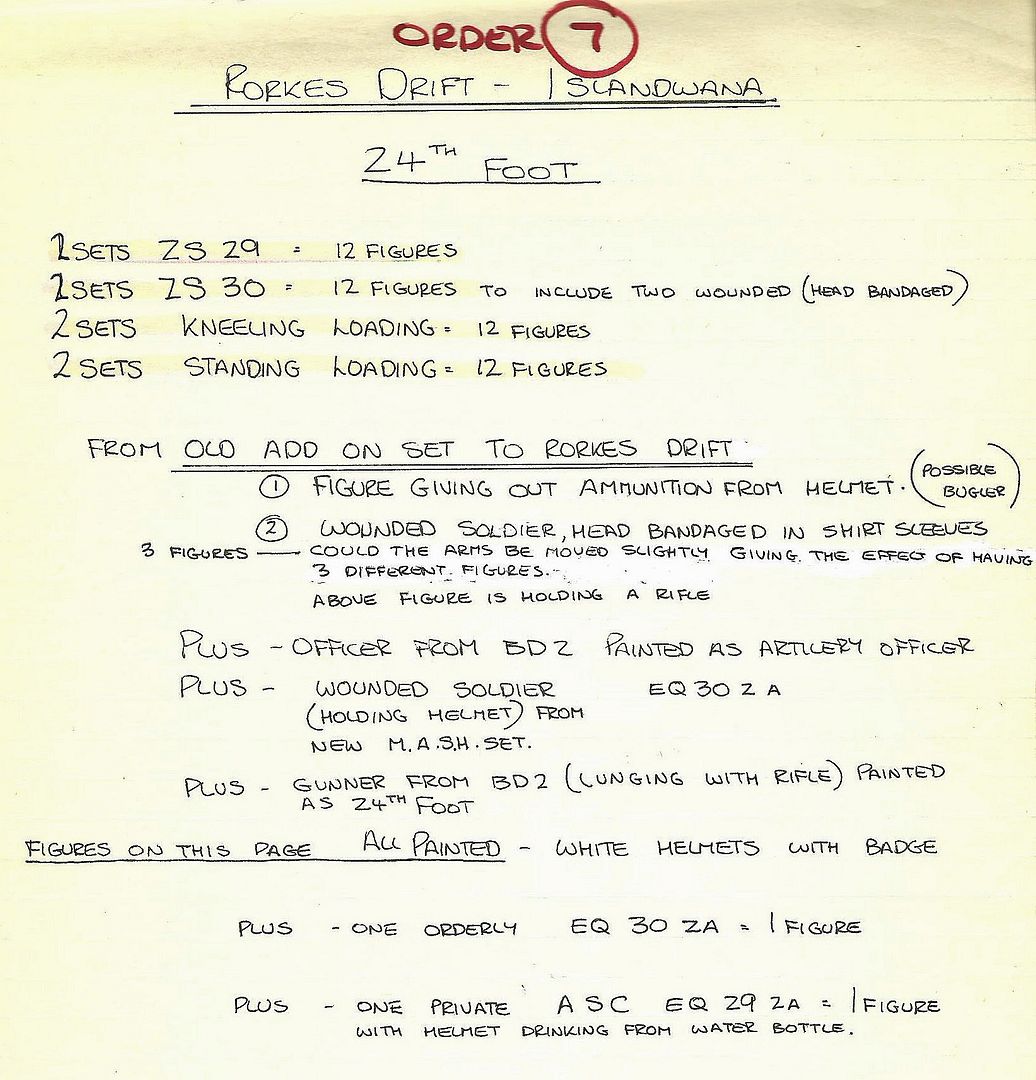 ORDER 7
RORKES DRIFT - ISLANDWANA
24TH FOOT
2 SETS ZS 29 = 12 FIGURES
2 SETS ZS 30 = 12 FIGURES TO INCLUDE TWO WOUNDED (HEAD BANDAGED)
2 SETS KNEELING LOADING = 12 FIGURES
2 SETS STANDING LOADING = 12 FIGURES
FROM OLD ADD ON SET TO RORKES DRIFT
① FIGURE GIVING OUT AMMUNITION FROM HELMET. (POSSIBLE
BUGLER)
② WOUNDED SOLDIER, HEAD BANDAGED IN SHIRT SLEEVES
3 FIGURES — COULD THE ARMS BE MOVED SLIGHTLY GIVING THE EFFECT OF HAVING
3 DIFFERENT FIGURES.
ABOVE FIGURE IS HOLDING A RIFLE
PLUS - OFFICER FROM BD2 PAINTED AS ARTILERY OFFICER
PLUS - WOUNDED SOLDIER EQ 30 ZA
(HOLDING HELMET) FROM
NEW M.A.S.H. SET.
PLUS - GUNNER FROM BD2 (LUNGING WITH RIFLE) PAINTED
AS 24TH FOOT
FIGURES ON THIS PAGE ALL PAINTED - WHITE HELMETS WITH BADGE
PLUS - ONE ORDERLY EQ 30 ZA = 1 FIGURE
PLUS - ONE PRIVATE ASC EQ 29 ZA = 1 FIGURE
WITH HELMET DRINKING FROM WATER BOTTLE.